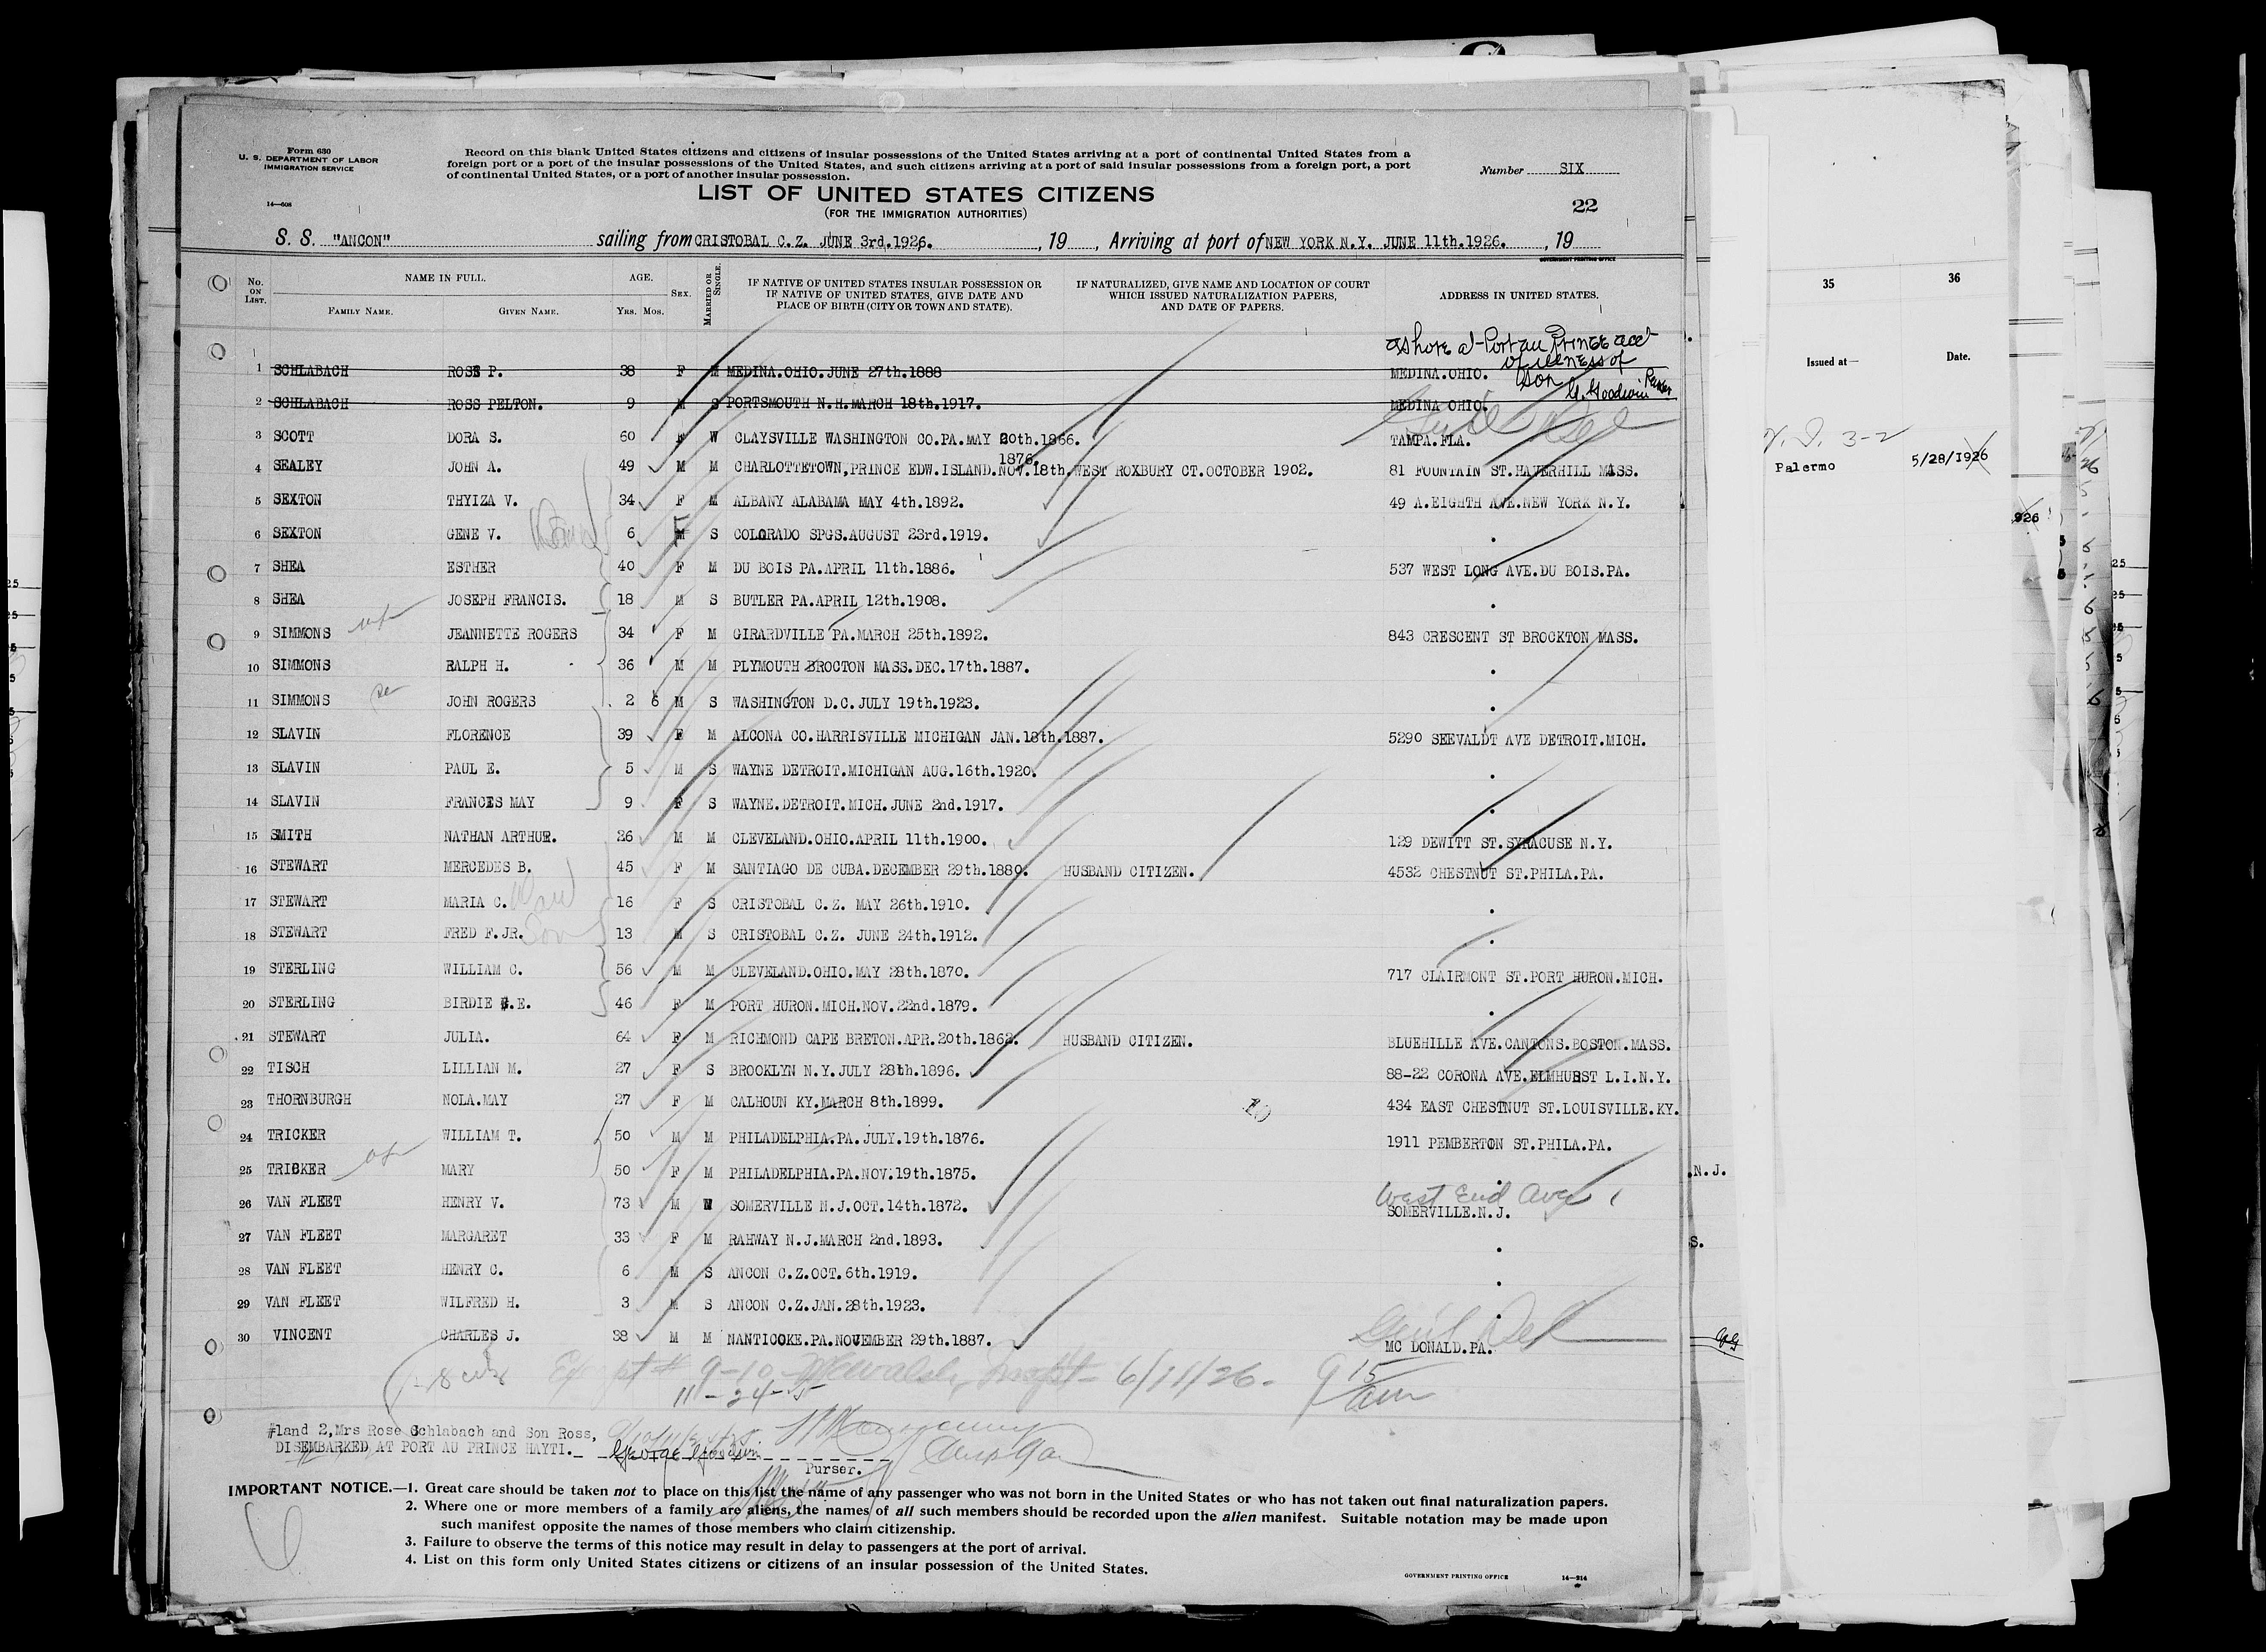 Form 630
U. S. DEPARTMENT OF LABOR
IMMIGRATION SERVICE
14—608
Record on this blank United States citizens and citizens of insular possessions of the United States arriving at a port of continental United States from a
foreign port or a port of the insular possessions of the United States, and such citizens arriving at a port of said insular possessions from a foreign port, a port
of continental United States, or a port of another insular possession.
Number SIX
LIST OF UNITED STATES CITIZENS
(FOR THE IMMIGRATION AUTHORITIES)
22
S. S. "ANCON" sailing from CRISTOBAL C.Z. JUNE 3rd.1926. , 19 , Arriving at port of NEW YORK N.Y. JUNE 11th.1926. , 19
GOVERNMENT PRINTING OFFICE
No. ON LIST. NAME IN FULL. FAMILY NAME. GIVEN NAME. AGE. YRS. MOS. SEX. MARRIED OR SINGLE. IF NATIVE OF UNITED STATES INSULAR POSSESSION OR IF NATIVE OF UNITED STATES, GIVE DATE AND PLACE OF BIRTH (CITY OR TOWN AND STATE). IF NATURALIZED, GIVE NAME AND LOCATION OF COURT WHICH ISSUED NATURALIZATION PAPERS, AND DATE OF PAPERS. ADDRESS IN UNITED STATES.
ashore at Port au Prince acct
of illness of
son G. Goodwin Purser
1 SCHLABACH ROSE P. 38 F M MEDINA.OHIO.JUNE 27th.1888 MEDINA.OHIO.
2 SCHLABACH ROSS PELTON. 9 M S PORTSMOUTH N.H.MARCH 18th.1917. MEDINA OHIO.
3 SCOTT DORA S. 60 F W CLAYSVILLE WASHINGTON CO.PA.MAY 20th.1866. TAMPA.FLA.
1876.
4 SEALEY JOHN A. 49 M M CHARLOTTETOWN,PRINCE EDW.ISLAND.NOV.18th. WEST ROXBURY CT.OCTOBER 1902. 81 FOUNTAIN ST.HAVERHILL MASS.
5 SEXTON THYIZA V. 34 F M ALBANY ALABAMA MAY 4th.1892. 49 A.EIGHTH AVE.NEW YORK N.Y.
6 SEXTON GENE V. 6 F S COLORADO SPGS.AUGUST 23rd.1919.
7 SHEA ESTHER 40 F M DU BOIS PA.APRIL 11th.1886. 537 WEST LONG AVE.DU BOIS.PA.
8 SHEA JOSEPH FRANCIS. 18 M S BUTLER PA.APRIL 12th.1908.
9 SIMMONS JEANNETTE ROGERS 34 F M GIRARDVILLE PA.MARCH 25th.1892. 843 CRESCENT ST BROCKTON MASS.
10 SIMMONS RALPH H. 36 M M PLYMOUTH BROCTON MASS.DEC.17th.1887.
11 SIMMONS JOHN ROGERS 2 6 M S WASHINGTON D.C.JULY 19th.1923.
12 SLAVIN FLORENCE 39 F M ALCONA CO.HARRISVILLE MICHIGAN JAN.18th.1887. 5290 SEEVALDT AVE DETROIT.MICH.
13 SLAVIN PAUL E. 5 M S WAYNE DETROIT.MICHIGAN AUG.16th.1920.
14 SLAVIN FRANCES MAY 9 F S WAYNE.DETROIT.MICH.JUNE 2nd.1917.
15 SMITH NATHAN ARTHUR. 26 M M CLEVELAND.OHIO.APRIL 11th.1900. 129 DEWITT ST.SYRACUSE N.Y.
16 STEWART MERCEDES B. 45 F M SANTIAGO DE CUBA.DECEMBER 29th.1880. HUSBAND CITIZEN. 4532 CHESTNUT ST.PHILA.PA.
17 STEWART MARIA C. 16 F S CRISTOBAL C.Z. MAY 26th.1910.
18 STEWART FRED F.JR. Son 13 M S CRISTOBAL C.Z. JUNE 24th.1912.
19 STERLING WILLIAM C. 56 M M CLEVELAND.OHIO.MAY 28th.1870. 717 CLAIRMONT ST.PORT HURON.MICH.
20 STERLING BIRDIE E. 46 F M PORT HURON.MICH.NOV.22nd.1879.
21 STEWART JULIA. 64 F M RICHMOND CAPE BRETON.APR.20th.1862. HUSBAND CITIZEN. BLUEHILLE AVE.CANTONS.BOSTON.MASS.
22 TISCH LILLIAN M. 27 F S BROOKLYN N.Y.JULY 28th.1896. 88-22 CORONA AVE.ELMHURST L.I.N.Y.
23 THORNBURGH NOLA.MAY 27 F M CALHOUN KY.MARCH 8th.1899. 434 EAST CHESTNUT ST.LOUISVILLE.KY.
24 TRICKER WILLIAM T. 50 M M PHILADELPHIA.PA.JULY.19th.1876. 1911 PEMBERTON ST.PHILA.PA.
25 TRICKER MARY 50 F M PHILADELPHIA.PA.NOV.19th.1875.
West End Ave
26 VAN FLEET HENRY V. 73 M W SOMERVILLE N.J.OCT.14th.1872. SOMERVILLE.N.J.
27 VAN FLEET MARGARET 33 F M RAHWAY N.J.MARCH 2nd.1893.
28 VAN FLEET HENRY C. 6 M S ANCON C.Z.OCT.6th.1919.
29 VAN FLEET WILFRED H. 3 M S ANCON C.Z.JAN.28th.1923.
Genl Del
30 VINCENT CHARLES J. 38 M M NANTICOKE.PA.NOVEMBER 29th.1887. MC DONALD.PA.
9-10 6/11/26- 9 15 am
11-24-5
#1and 2,Mrs Rose Schlabach and Son Ross,
DISEMBARKED AT PORT AU PRINCE HAYTI. George Goodwin
Purser.
IMPORTANT NOTICE.—1. Great care should be taken not to place on this list the name of any passenger who was not born in the United States or who has not taken out final naturalization papers.
2. Where one or more members of a family are aliens, the names of all such members should be recorded upon the alien manifest. Suitable notation may be made upon
such manifest opposite the names of those members who claim citizenship.
3. Failure to observe the terms of this notice may result in delay to passengers at the port of arrival.
4. List on this form only United States citizens or citizens of an insular possession of the United States.
GOVERNMENT PRINTING OFFICE 14—214
6
35 36
Issued at— Date.
3-2
Palermo 5/28/1926
926
N.J.
S.